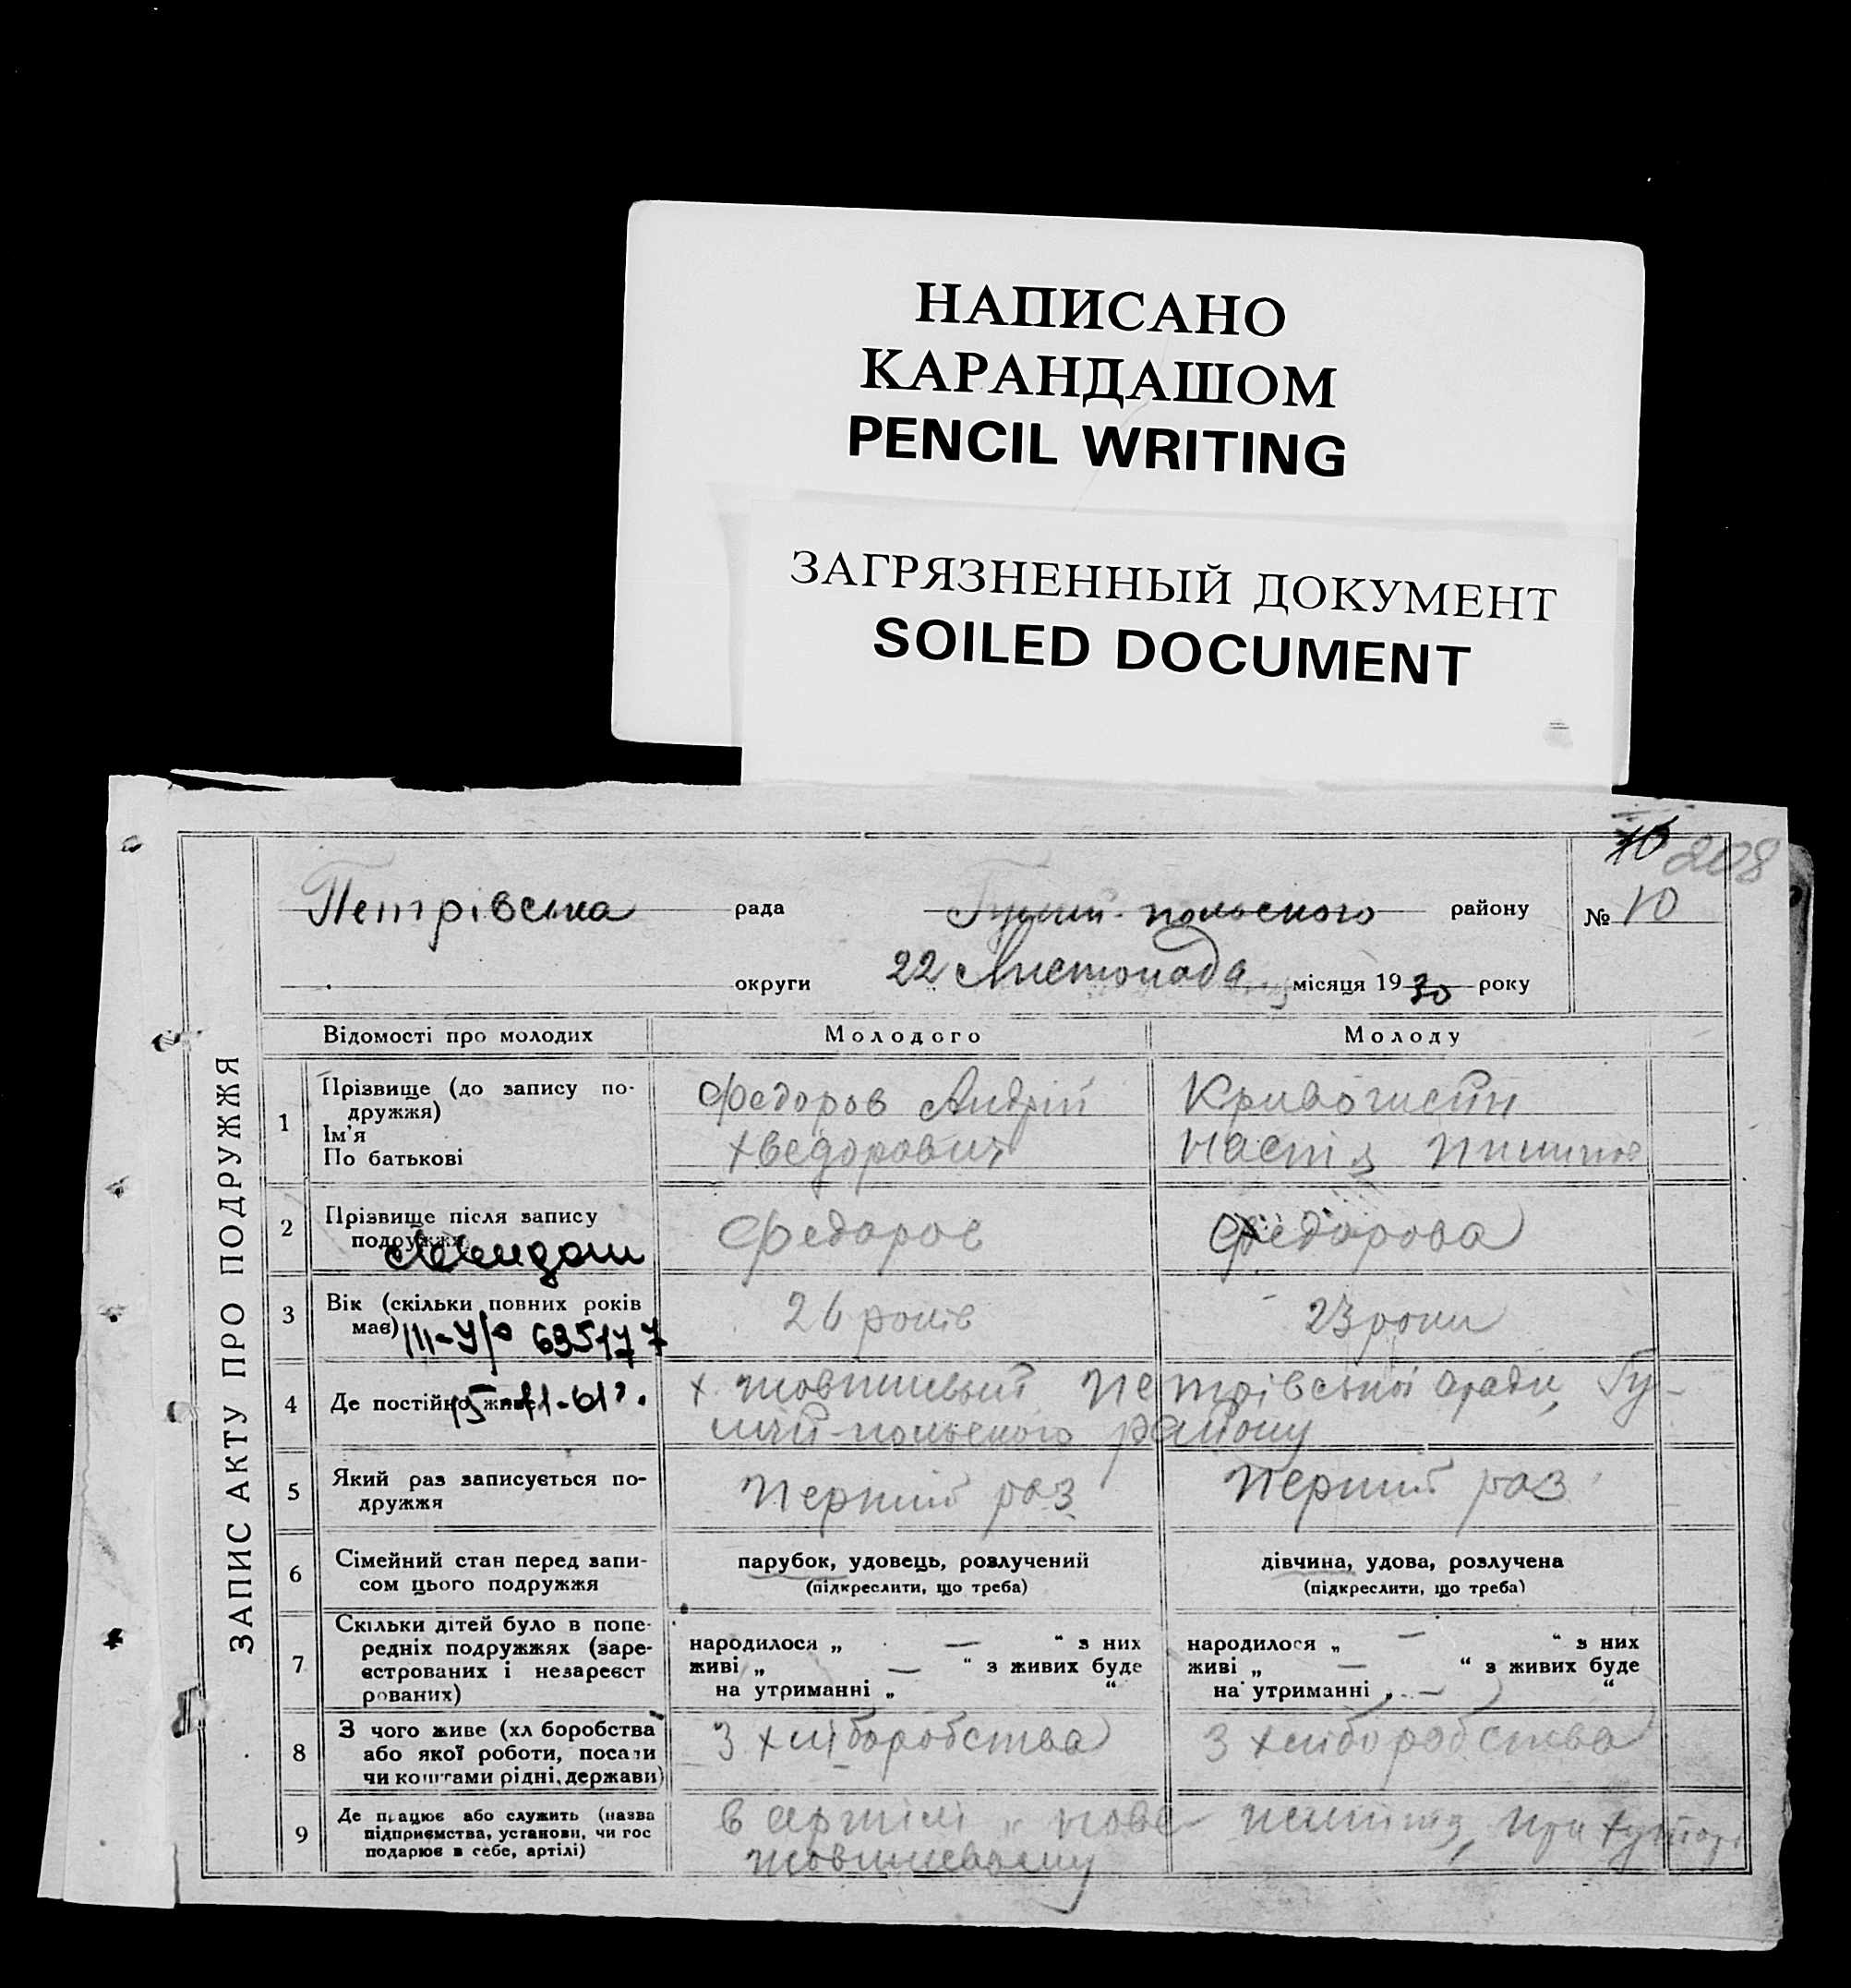 НАПИСАНО
КАРАНДАШОМ
PENCIL WRITING
ЗАГРЯЗНЕННЫЙ ДОКУМЕНТ
SOILED DOCUMENT
10 208
Петрівська рада польського району № 10
округи 22 Листопада місяця 1930 року
ЗАПИС АКТУ ПРО ПОДРУЖЖЯ
Відомості про молодих Молодого Молоду
1 Прізвище (до запису по-
дружжя)
Ім'я
По батькові
Федоров Андрій
Хведорович
Настія
2 Прізвище після запису
подружжя
Федоров
Федорова
3 Вік (скільки повних років
має)
III-УР 635177
26 років
23 роки
4 Де постійно живе
15-11-61г.
х. Петрівської сради, Гу-
польского району
5 Який раз записується по-
дружжя
Перший раз
Перший раз
6 Сімейний стан перед запи-
сом цього подружжя
парубок, удовець, розлучений
(підкреслити, що треба)
дівчина, удова, розлучена
(підкреслити, що треба)
7 Скільки дітей було в попе-
редніх подружжях (заре-
єстрованих і незареєст
рованих)
народилося „ — “ з них
живі „ — “ з живих буде
на утриманні „ “
народилося „ — “ з них
живі „ — “ з живих буде
на утриманні „ — “
8 З чого живе (хл боробства
або якої роботи, посади
чи коштами рідні, держави)
З хліборобства
З хліборобства
9 Де працює або служить (назва
підприємства, установи, чи гос
подарює в себе, артілі)
в артілі „ нове при хуторі